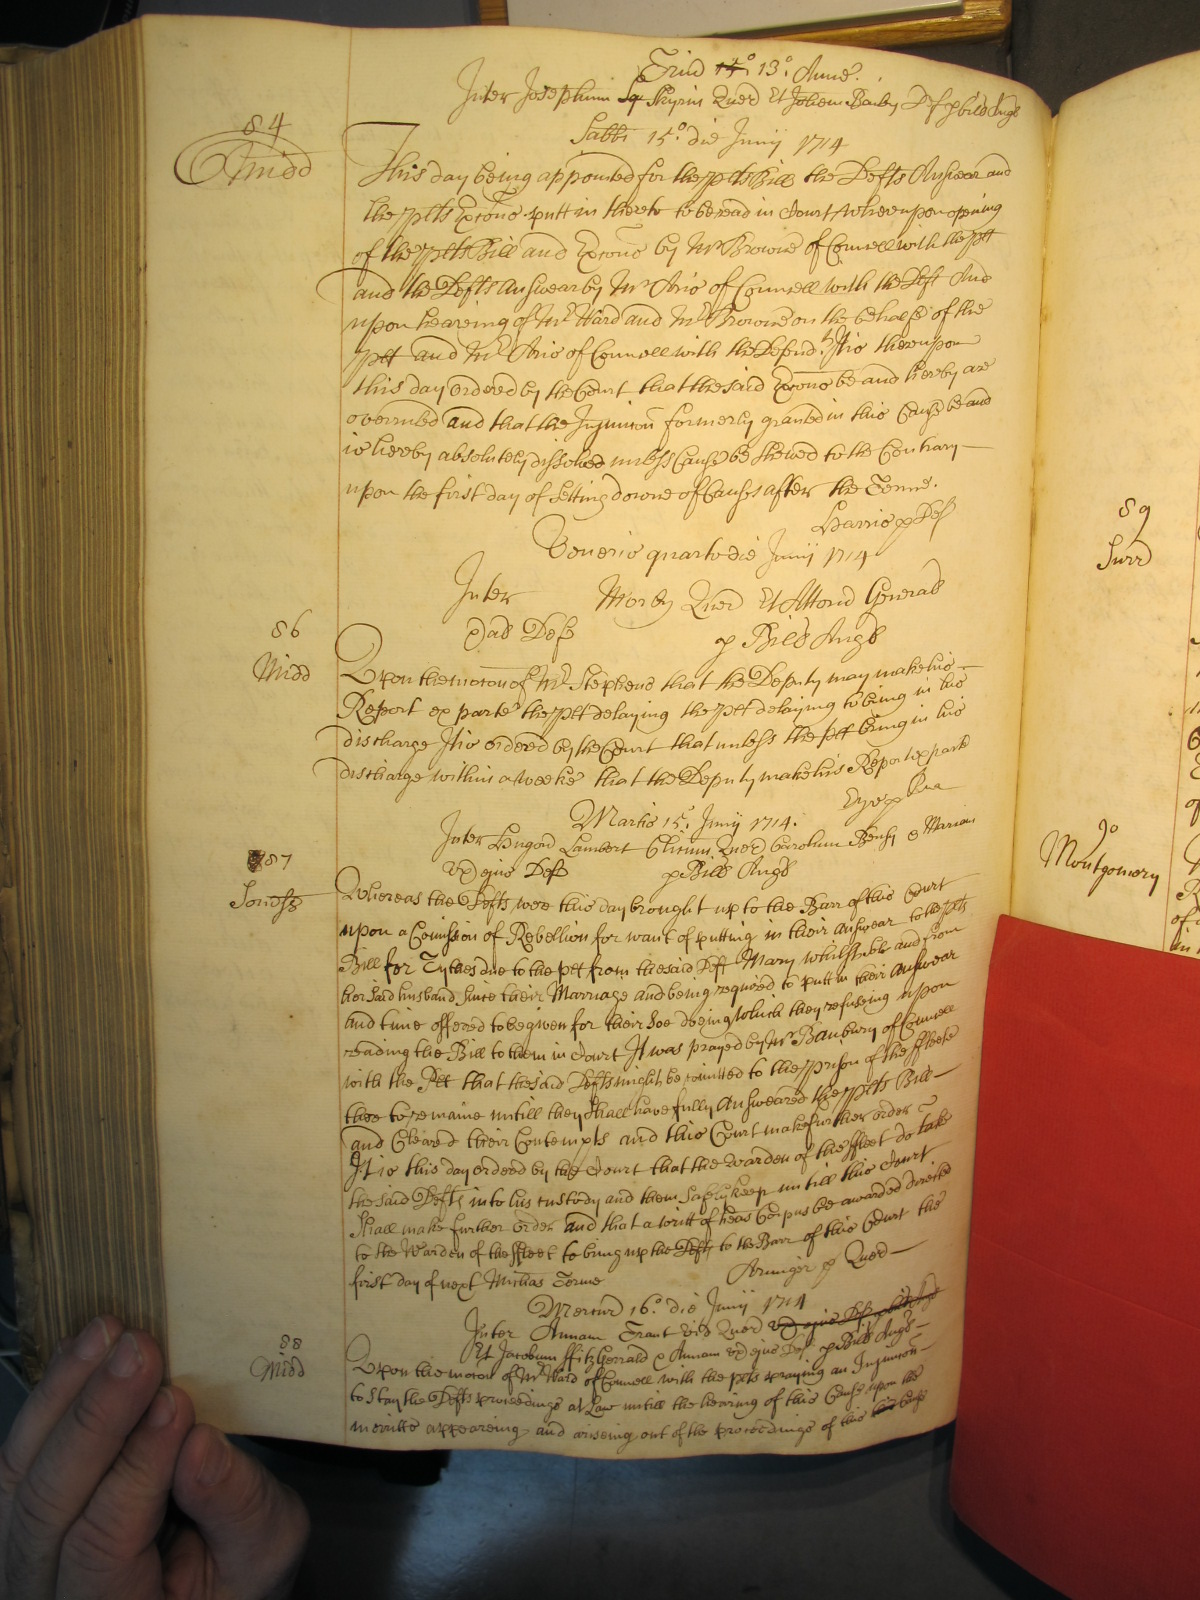 Trin 14o 13o Anne.
Inter Josephum Sq Skyrin Quer Et Johem Barby Def p bill Angl
Sabbi 15o die Junij 1714
84
Midd
This day being appointed for the plts Bill the Defts Answear and
the plts Excons putt in thereto to be read in Court whereupon opening
of the plts Bill and Excons by Mr Browne of Councell with the plt
and the Defts Answear by Mr of Councell with the Deft And
upon heareing of Mr Ward and Mr Browne on the behalfe of the
plt and Mr of Councell with the Defend.t It is thereupon
this day ordered by the Court that the said Excons be and hereby are
overruled and that the Injuncon formerly granted in this Cause be and
is hereby absolutely dissolved unless Cause be shewed to the Contrary
upon the first day of Setting downe of Causes after the Terme.
Harris p Def
Veneris quarto die Junij 1714
Inter Quer Et Attorn General
Def p Bill Angl
86
Midd
Upon the mocon of Mr Stephens that the Deputy may make his
Report ex parte the plt delaying the plt delaying to bring in his
discharge It is ordered by the Court that unless the plt bring in his
discharge within a weeke that the Deputy make his Report ex parte
Eyre p
Martis 15o Junij 1714.
Inter Lambert Clicum Quer Carolum & Mariam
Ux ejus Def p Bill Angl
87
Whereas the Defts were this day brought up to the Barr of this Court
upon a Comission of Rebellion for want of putting in their Answear to the plts
Bill for Tythes due to the plt from the said Deft Mary whilst sole and from
her said husband since their Marriage and being required to putt in their Answear
and time offered to be given for their soe doeing which they refuseing upon
reading the Bill to them in Court It was prayed by Mr Banbury of Councell
with the Plt that the said Defts might be comitted to the prison of the ffleete
there to remaine untill they shall have fully Answeared the plts Bill
and Cleared their Contempts and this Court make further order
It is this day ordered by the Court that the warden of the ffleet do take
the said Defts into his custody and them safely keep untill this Court
shall make further order and that a writt of heas Corpus be awarded directed
to the Warden of the ffleet to bring up the Defts to the Barr of this Court the
first day of next Michas Terme
Aringer p Quer
Mercur 16o die Junij 1714
Inter Annam Trant Vid Quer Ux ejus Def p bill Angl
Et Jacobum ffitzGerrald & Annam Ux ejus Def p Bill Angl
88
Midd
Upon the mocon of Mr Ward of Councell with the plts praying an Injuncon
to stay the Defts proceedings at Law untill the hearing of this Cause upon the
meritts appeareing and ariseing out of the proceedings of this Cause
89
Surr
90
Montgomery